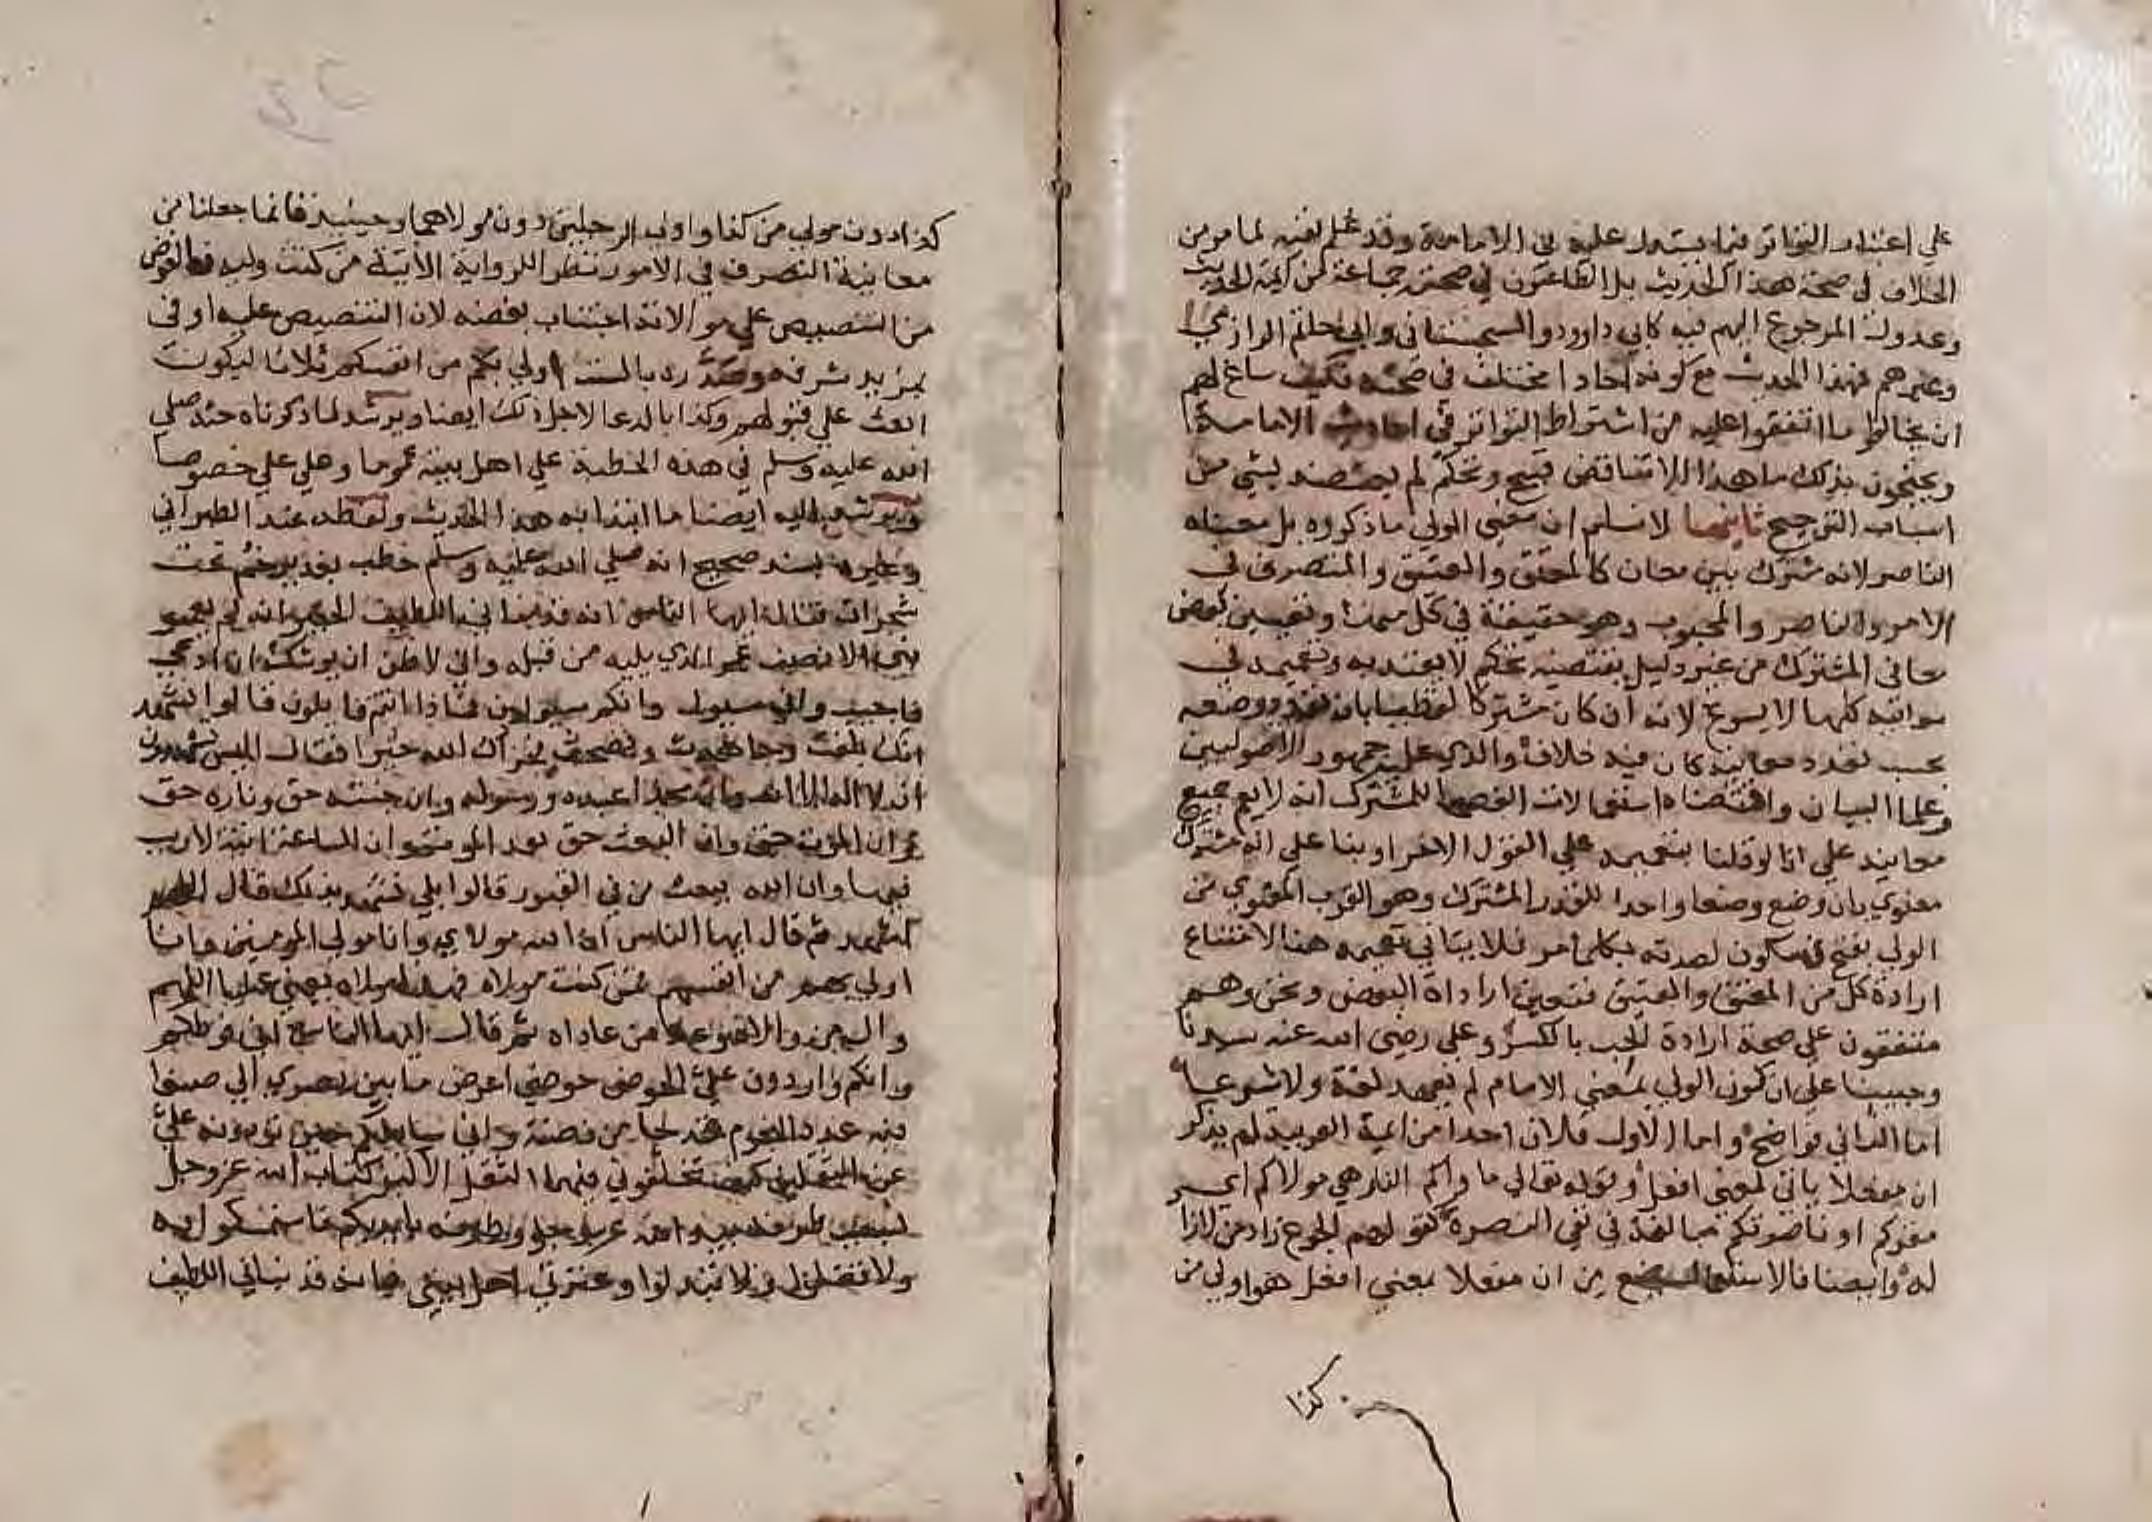 علي اعتبار التواتر فيما يستدل عليه في الامامة وقد علم نفيه لما مر من
الخلاف في صحة هذا الحديث بل الطاعنون في صحته جماعة من ائمة الحديث
وعدوله المرجوع اليهم فيه كابي داوود والسجستاني وابي حاتم الرازي
وغيرهم فهذا الحديث مع كونه احادا مختلف في صحته فكيف ساغ لهم
ان يخالفوا ما اتفقوا عليه من اشتراط التواتر في احاديث الامامة
ويحتجون بذلك ما هذا الا تناقض قبيح وتحكم لم يعتضد بشي من
اسباب الترجيح ثانيها لا نسلم ان معني الولي ما ذكروه بل معناه
الناصر لانه مشترك بين معان كالمعتق والعتيق والمتصرف في
الامر والناصر والمحبوب وهو حقيقة في كل منها وتعيين بعض
معاني المشترك من غير دليل يقتضيه تحكم لا يعتد به وتعميمه في
معانيه كلها لا يسوغ لانه ان كان مشتركا لفظيا بان تعدد وضعه
بحسب تعدد معانيه كان فيه خلاف والذي عليه جمهور الاصوليين
وعلما البيان واقتضاه استعمالات الفصحا للمشترك انه لا يعم جميع
معانيه علي انا لو قلنا بتعميمه علي القول الاخر او بنا علي انه مشترك
معنوي بان وضع وضعا واحدا للقدر المشترك وهو القرب المعنوي من
الولي بفتح فسكون لصدقه بكل ما مر فلا يتاتي تعميمه هنا لامتناع
ارادة كل من المعتق والعتيق فتعين اراداة البعض ونحن وهم
متفقون علي صحة ارادة الحب بالكسر وعلي رضي الله عنه سيدنا
وحبيبنا علي ان كون الولي بمعني الامام لم يعهد لغة ولا شرعا
اما الثاني فواضح واما الاول فلان احدا من ائمة العربية لم يذكر
ان مفعلا ياتي بمعني افعل وقوله تعالي ماواكم النار هي مولاكم اي
مقركم او ناصرتكم مبالغة في نفي النصرة كقولهم الجوع زاد من لا زاد
له وايضا فالاستعمال يمنع من ان مفعلا بمعني افعل هو اولي من
كذا
كذا دون مولي من كذا واولي الرجلين دون مولاهما وحينئذ فانما جعلنا من
معانيه التصرف في الامور نظرا للرواية الاتية من كنت وليه فالغرض
من التنصيص علي موالاته اجتناب بغضه لان التنصيص عليه اوفي
بمزيد شرفه وصدره بالست اولي بكم من انفسكم ثلاثا ليكون
ابعث علي قبولهم وكذا بالدعا لاجل ذلك ايضا ويرشد لما ذكرناه حثه صلي
الله عليه وسلم في هذه الخطبة علي اهل بيته عموما وعلي علي خصوصا
ويرشد اليه ايضا ما ابتدا به هذا الحديث ولفظه عند الطبراني
وغيره بسند صحيح انه صلي الله عليه وسلم خطب بغدير خم تحت
شجرات فقال ايها الناس انه قد نباني اللطيف الخبير انه لم يعمر
نبي الا نصف عمر الذي يليه من قبله واني لاظن ان يوشك ان ادعي
فاجيب واني مسيول وانكم مسيولون فماذا انتم قايلون قالوا نشهد
انك بلغت وجاهدت ونصحت فجزاك الله خيرا فقال اليس تشهدون
ان لا اله الا الله وان محمدا عبده ورسوله وان جنته حق وناره حق
وان الموت حق وان البعث حق بعد الموت وان الساعة اتية لا ريب
فيها وان الله يبعث من في القبور قالوا بلي نشهد بذلك قال اللهم
اشهد ثم قال ايها الناس ان الله مولاي وانا مولي المومنين وانا
اولي بهم من انفسهم فمن كنت مولاه فهذا مولاه يعني عليا اللهم
وال من والاه وعاد من عاداه ثم قال ايها الناس اني فرطكم
وانكم واردون علي الحوض حوضي اعرض ما بين بصري الي صنعا
فيه عدد النجوم قدحان من فضة واني سايلكم حين تردون علي
عن الثقلين كيف تخلفوني فيهما الثقل الاكبر كتاب الله عز وجل
سبب طرفه بيد الله عز وجل وطرفه بايديكم فاستمسكوا به
ولا تضلوا ولا تبدلوا وعترتي اهل بيتي فانه قد نباني اللطيف